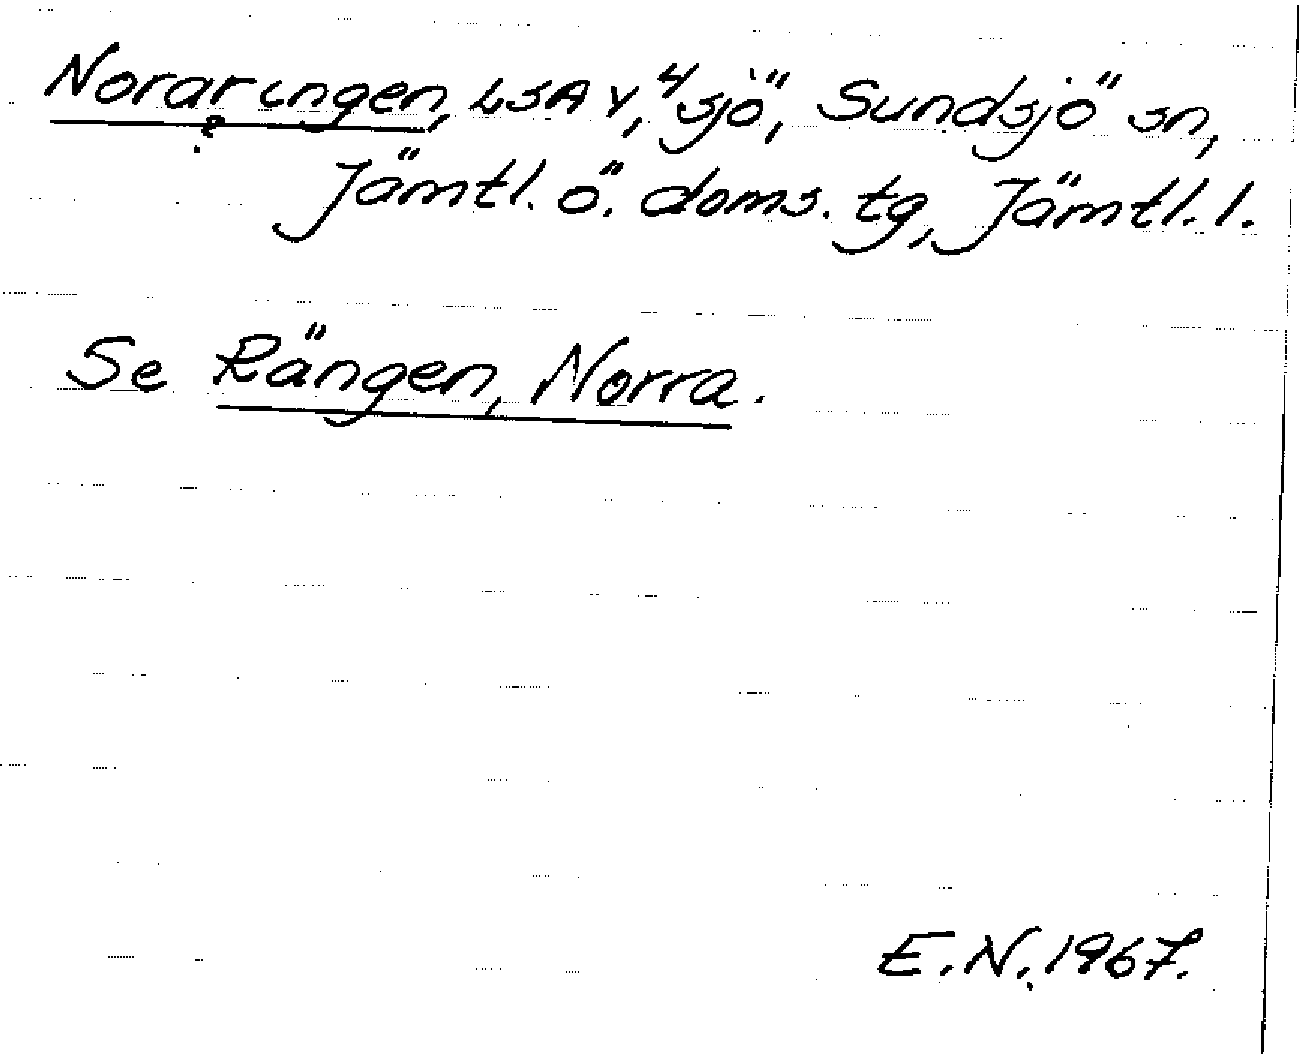 Noraringen, LSA Y, "sjö", Sundsjö sn,
Jämtl. ö. doms. tg, Jämtl. l.
Se Rängen, Norra.
E.N. 1967.